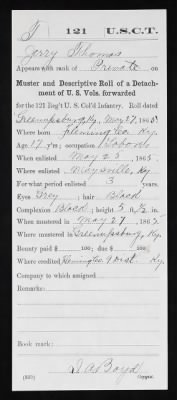 T | 121 | U.S.C.T.
Jerry Thomas
Appears with rank of Private on
Muster and Descriptive Roll of a Detachment of U. S. Vols. forwarded
for the 121 Reg't U. S. Col'd Infantry. Roll dated
Greenupsburg, Ky, May 27, 1865.
Where born Fleming Co, Ky.
Age 17 y'rs; occupation Laborer
When enlisted May 23, 1865.
Where enlisted Maysville, Ky.
For what period enlisted 3 years.
Eyes Grey; hair Black
Complexion Black; height 5 ft. in.
When mustered in May 27, 1865.
Where mustered in Greenupsburg, Ky.
Bounty paid $ 100; due $ 100
Where credited Flemington 9 Dist. Ky.
Company to which assigned
Remarks:
Book mark:
J. A. Boyd
Copyist.